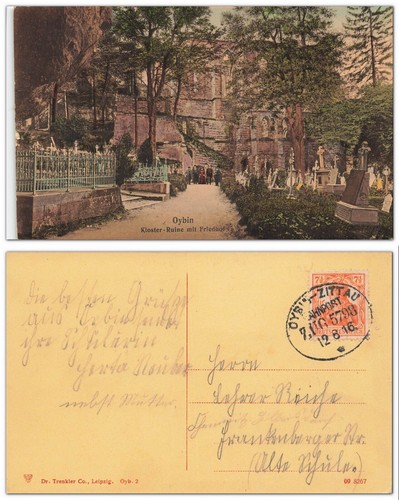 Oybin
Kloster-Ruine mit Friedhof
die besten Grüße
aus Oybin sendet
ihre Schülerin
Herta Neuber
nebst Mutter.
7½
OYBIN-ZITTAU
BAHNPOST
ZUG 5703
12 8 16
Herrn
Lehrer Reiche
Frankenberger Str.
(Alte Schule.)
Dr. Trenkler Co., Leipzig. Oyb. 2
09 8267